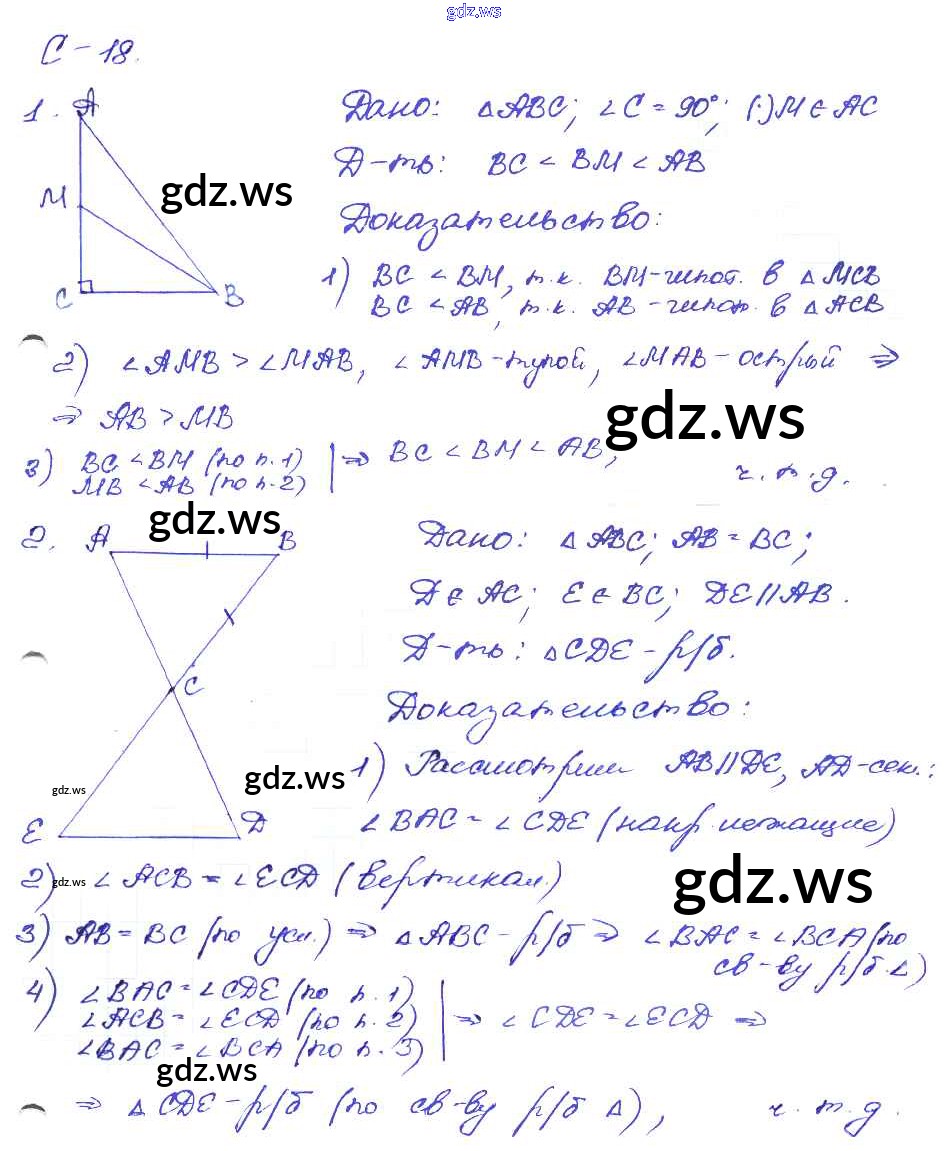 gdz.ws
С-18.
1. A
Дано: △ABC; ∠C = 90°; (·)M ∈ AC
Д-ть: BC < BM < AB
M
gdz.ws
Доказательство:
1) BC < BM, т.к. BM-гипот. в △MCB
C B
BC < AB, т.к. AB-гипот. в △ACB
2) ∠AMB > ∠MAB, ∠AMB-тупой, ∠MAB-острый ⇒
⇒ AB > MB
gdz.ws
3) BC < BM (по п.1)
MB < AB (по п.2) | ⇒ BC < BM < AB,
ч.т.д.
gdz.ws
2. A B
Дано: △ABC; AB = BC;
D ∈ AC; E ∈ BC; DE || AB.
Д-ть: △CDE - р/б.
C
Доказательство:
1) Рассмотрим AB || DE, AD-сек.:
gdz.ws
gdz.ws
E D
∠BAC = ∠CDE (накр. лежащие)
2) ∠ACB = ∠ECD (вертикал.)
gdz.ws
gdz.ws
3) AB = BC (по усл.) ⇒ △ABC - р/б ⇒ ∠BAC = ∠BCA (по
св-ву р/б △)
4) ∠BAC = ∠CDE (по п.1)
∠ACB = ∠ECD (по п.2) | ⇒ ∠CDE = ∠ECD ⇒
∠BAC = ∠BCA (по п.3)
gdz.ws
⇒ △CDE - р/б (по св-ву р/б △), ч.т.д.